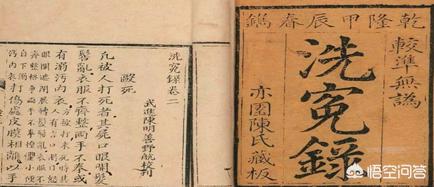 乾隆甲辰春鐫
較準無譌
洗冤錄
亦園陳氏藏板
洗冤錄卷二
武進陳明善野航校刊
毆死
凡被人打死者其屍口眼開髮
髻亂衣服不齊整兩手不拳或
有溺污內衣
打傷處皮膜相離以手
悟空问答